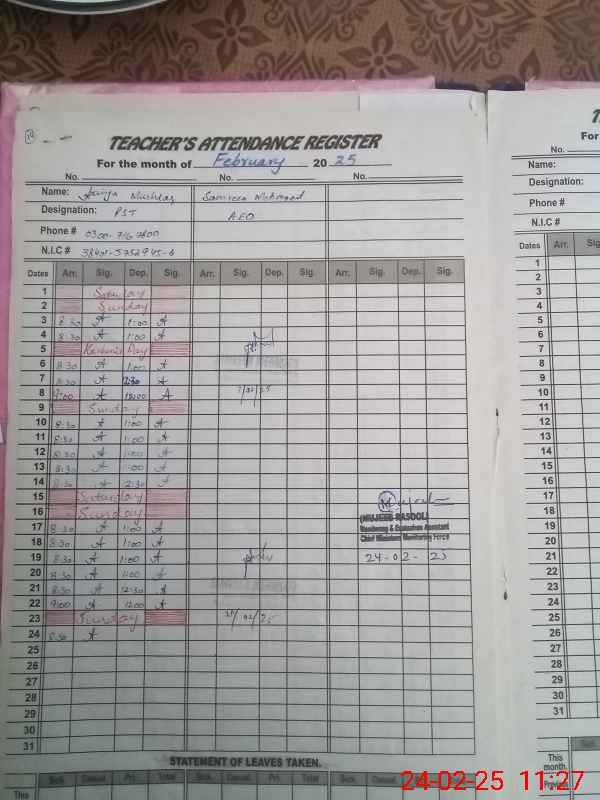 TEACHER'S ATTENDANCE REGISTER
For the month of February 20 25
No. No. No.
Name: Mushtaq Mehmood
Designation: PST AEO
Phone #
N.I.C #
Dates Arr. Sig. Dep. Sig. Arr. Sig. Dep. Sig. Arr. Sig. Dep. Sig.
1 Saturday
2 Sunday
3 8:30 A 1:00 A
4 8:30 A 1:00 A
5 Kashmir Day
6 8:30 A 1:00 A
7 8:30 A 12:30 A
8 9:00 A 12:00 A
9 Sunday
10 8:30 A 1:00 A
11 8:30 A 1:00 A
12 8:30 A 1:00 A
13 8:30 A 1:00 A
14 8:30 A 12:30 A
15 Saturday
16 Sunday
(MUJEEB RASOOL)
17 8:30 A 1:00 A
Monitoring & Evaluation Assistant
18 8:30 A 1:00 A
Chief Minister Monitoring Force
19 8:30 A 1:00 A 24-02-25
20 8:30 A 1:00 A
21 8:30 A 12:30 A
22 9:00 A 12:00 A
23 Sunday
24 8:30 A
25
26
27
28
29
30
31
STATEMENT OF LEAVES TAKEN.
Sick. Casual. Pri. Total Sick. Casual. Pri. Total Sick.
This
For
No.
Name:
Designation:
Phone #
N.I.C #
Dates Arr. Sig.
1
2
3
4
5
6
7
8
9
10
11
12
13
14
15
16
17
18
19
20
21
22
23
24
25
26
27
28
29
30
31
This
month.
24-02-25 11:27